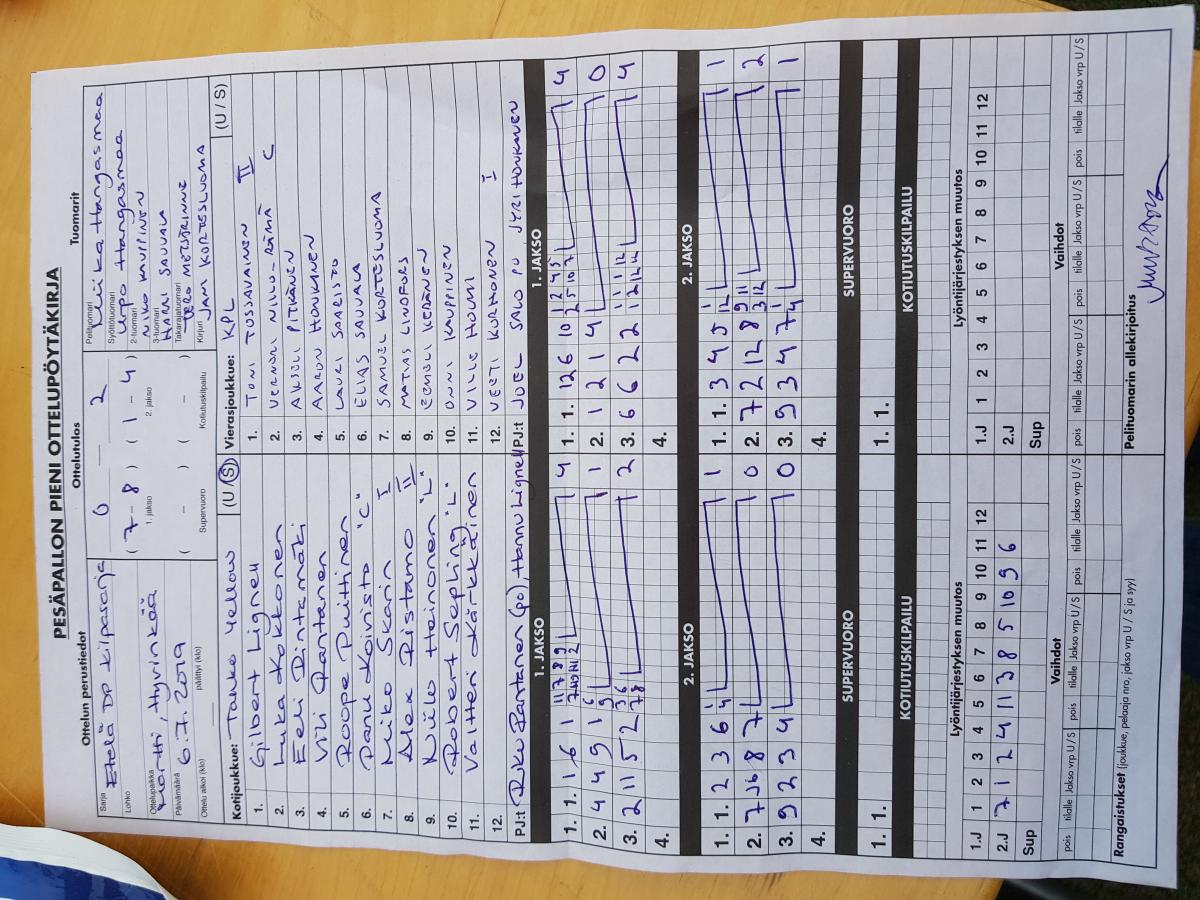 PESÄPALLON PIENI OTTELUPÖYTÄKIRJA
Ottelun perustiedot
Ottelutulos
Tuomarit
Sarja
Etelä DP kilpasarja
Lohko
Ottelupaikka
Martti, Hyvinkää
Päivämäärä
6.7.2019
Ottelu alkoi (klo)
päättyi (klo)
0 – 2
( 7 - 8 ) ( 1 - 4 )
1. jakso
2. jakso
( - ) ( - )
Supervuoro
Kotiutuskilpailu
Pelituomari
Miika Hangasmaa
Syöttötuomari
Urpo Hangasmaa
2-tuomari
NIKO KAUPPINEN
3-tuomari
HARRI SAUVALA
Takarajatuomari
TERO METSÄRINNE
Kirjuri
JANI KORTESLUOMA
Kotijoukkue: Tahko Yellow (U / S)
1. Gilbert Lignell
2. Luka Kokkonen
3. Eeli Rintamäki
4. Vili Rantanen
5. Roope Puittinen
6. Panu Koivisto "C"
7. Miko Skarin I
8. Alex Ristamo II
9. Niilo Heinonen "L"
10. Robert Sepling "L"
11. Valtteri Kärkkäinen
12.
PJ:t Riku Rantanen (po), Hannu Lignell
Vierasjoukkue: KPL (U / S)
1. TONI TOSSAVAINEN II
2. VERNERI NILO-RÄMÄ C
3. AKSELI PITKÄNEN
4. AARON HONKANEN
5. LAURI SAARISTO
6. ELIAS SAUVALA
7. SAMUEL KORTESLUOMA
8. MATIAS LINDFORS
9. EEMELI KERÄNEN
10. ONNI KAUPPINEN
11. VILLE HOUMI
12. VEETI KORHONEN I
PJ:t JOEL SALO PJ JYRI HONKANEN
1. JAKSO
1. JAKSO
1. 1. 1 6 1 4
2. 4 4 9 1 1
3. 2 11 5 2 2
4.
1. 1. 12 6 10 4
2. 1 2 1 4 0
3. 6 6 2 2 4
4.
2. JAKSO
2. JAKSO
1. 1. 2 3 6 1
2. 7 8 7 0
3. 9 2 3 4 0
4.
1. 1. 3 4 5 1
2. 7 2 12 8 2
3. 9 3 4 7 1
4.
SUPERVUORO
SUPERVUORO
1. 1.
1. 1.
KOTIUTUSKILPAILU
KOTIUTUSKILPAILU
Lyöntijärjestyksen muutos
Lyöntijärjestyksen muutos
1.J 1 2 3 4 5 6 7 8 9 10 11 12
2.J 7 1 2 4 11 3 8 5 10 9 6
Sup
1.J 1 2 3 4 5 6 7 8 9 10 11 12
2.J
Sup
Vaihdot
Vaihdot
pois tilalle Jakso vrp U / S pois tilalle Jakso vrp U / S pois tilalle Jakso vrp U / S
pois tilalle Jakso vrp U / S pois tilalle Jakso vrp U / S pois tilalle Jakso vrp U / S
Rangaistukset (joukkue, pelaaja nro, jakso vrp, U / S ja syy)
Pelituomarin allekirjoitus